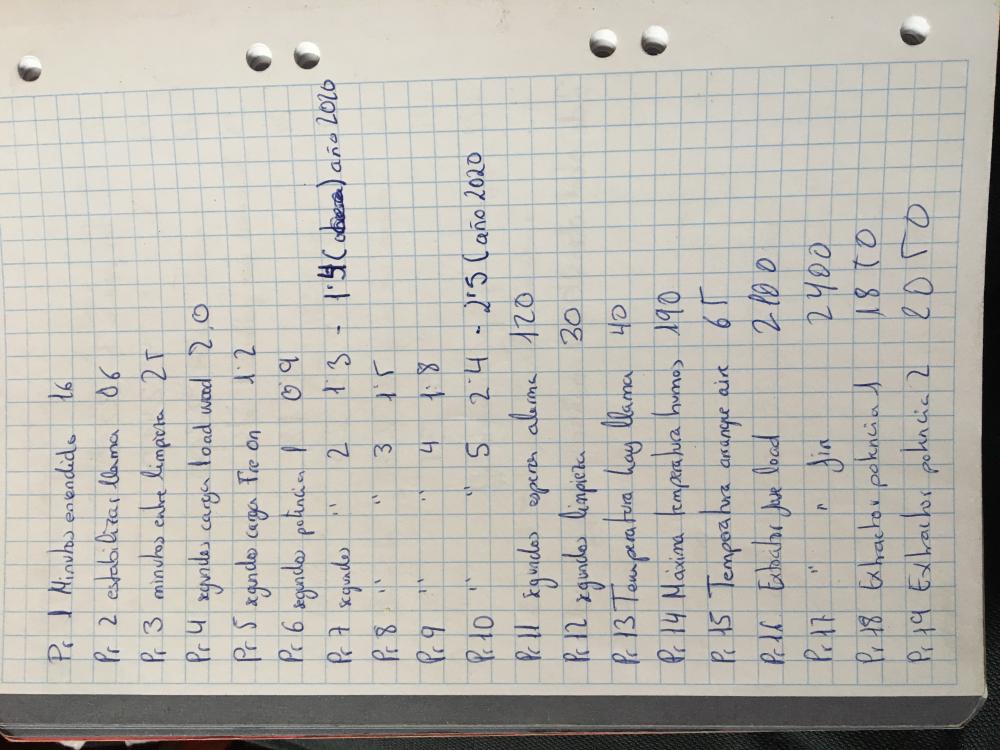 Pr 1 Minutos encendido 16
Pr 2 estabilizar llama 06
Pr 3 minutos entre limpieza 25
Pr 4 segundos carga load wood 2,0
Pr 5 segundos carga Fire on 1'2
Pr 6 segundos potencia 1 0'9
Pr 7 segundos " 2 1'3 - 1'4 año 2026
Pr 8 " " 3 1'5
Pr 9 " " 4 1'8
Pr 10 " 5 2'4 - 2'5 (año 2020
Pr 11 segundos espera alarma 120
Pr 12 segundos limpieza 30
Pr 13 Temperatura hay llama 40
Pr 14 Máxima temperatura humos 190
Pr 15 Temperatura arranque aire 65
Pr 16 Extractor fire load 2100
Pr 17 " " fin 2400
Pr 18 Extractor potencia 1 1850
Pr 19 Extractor potencia 2 2050